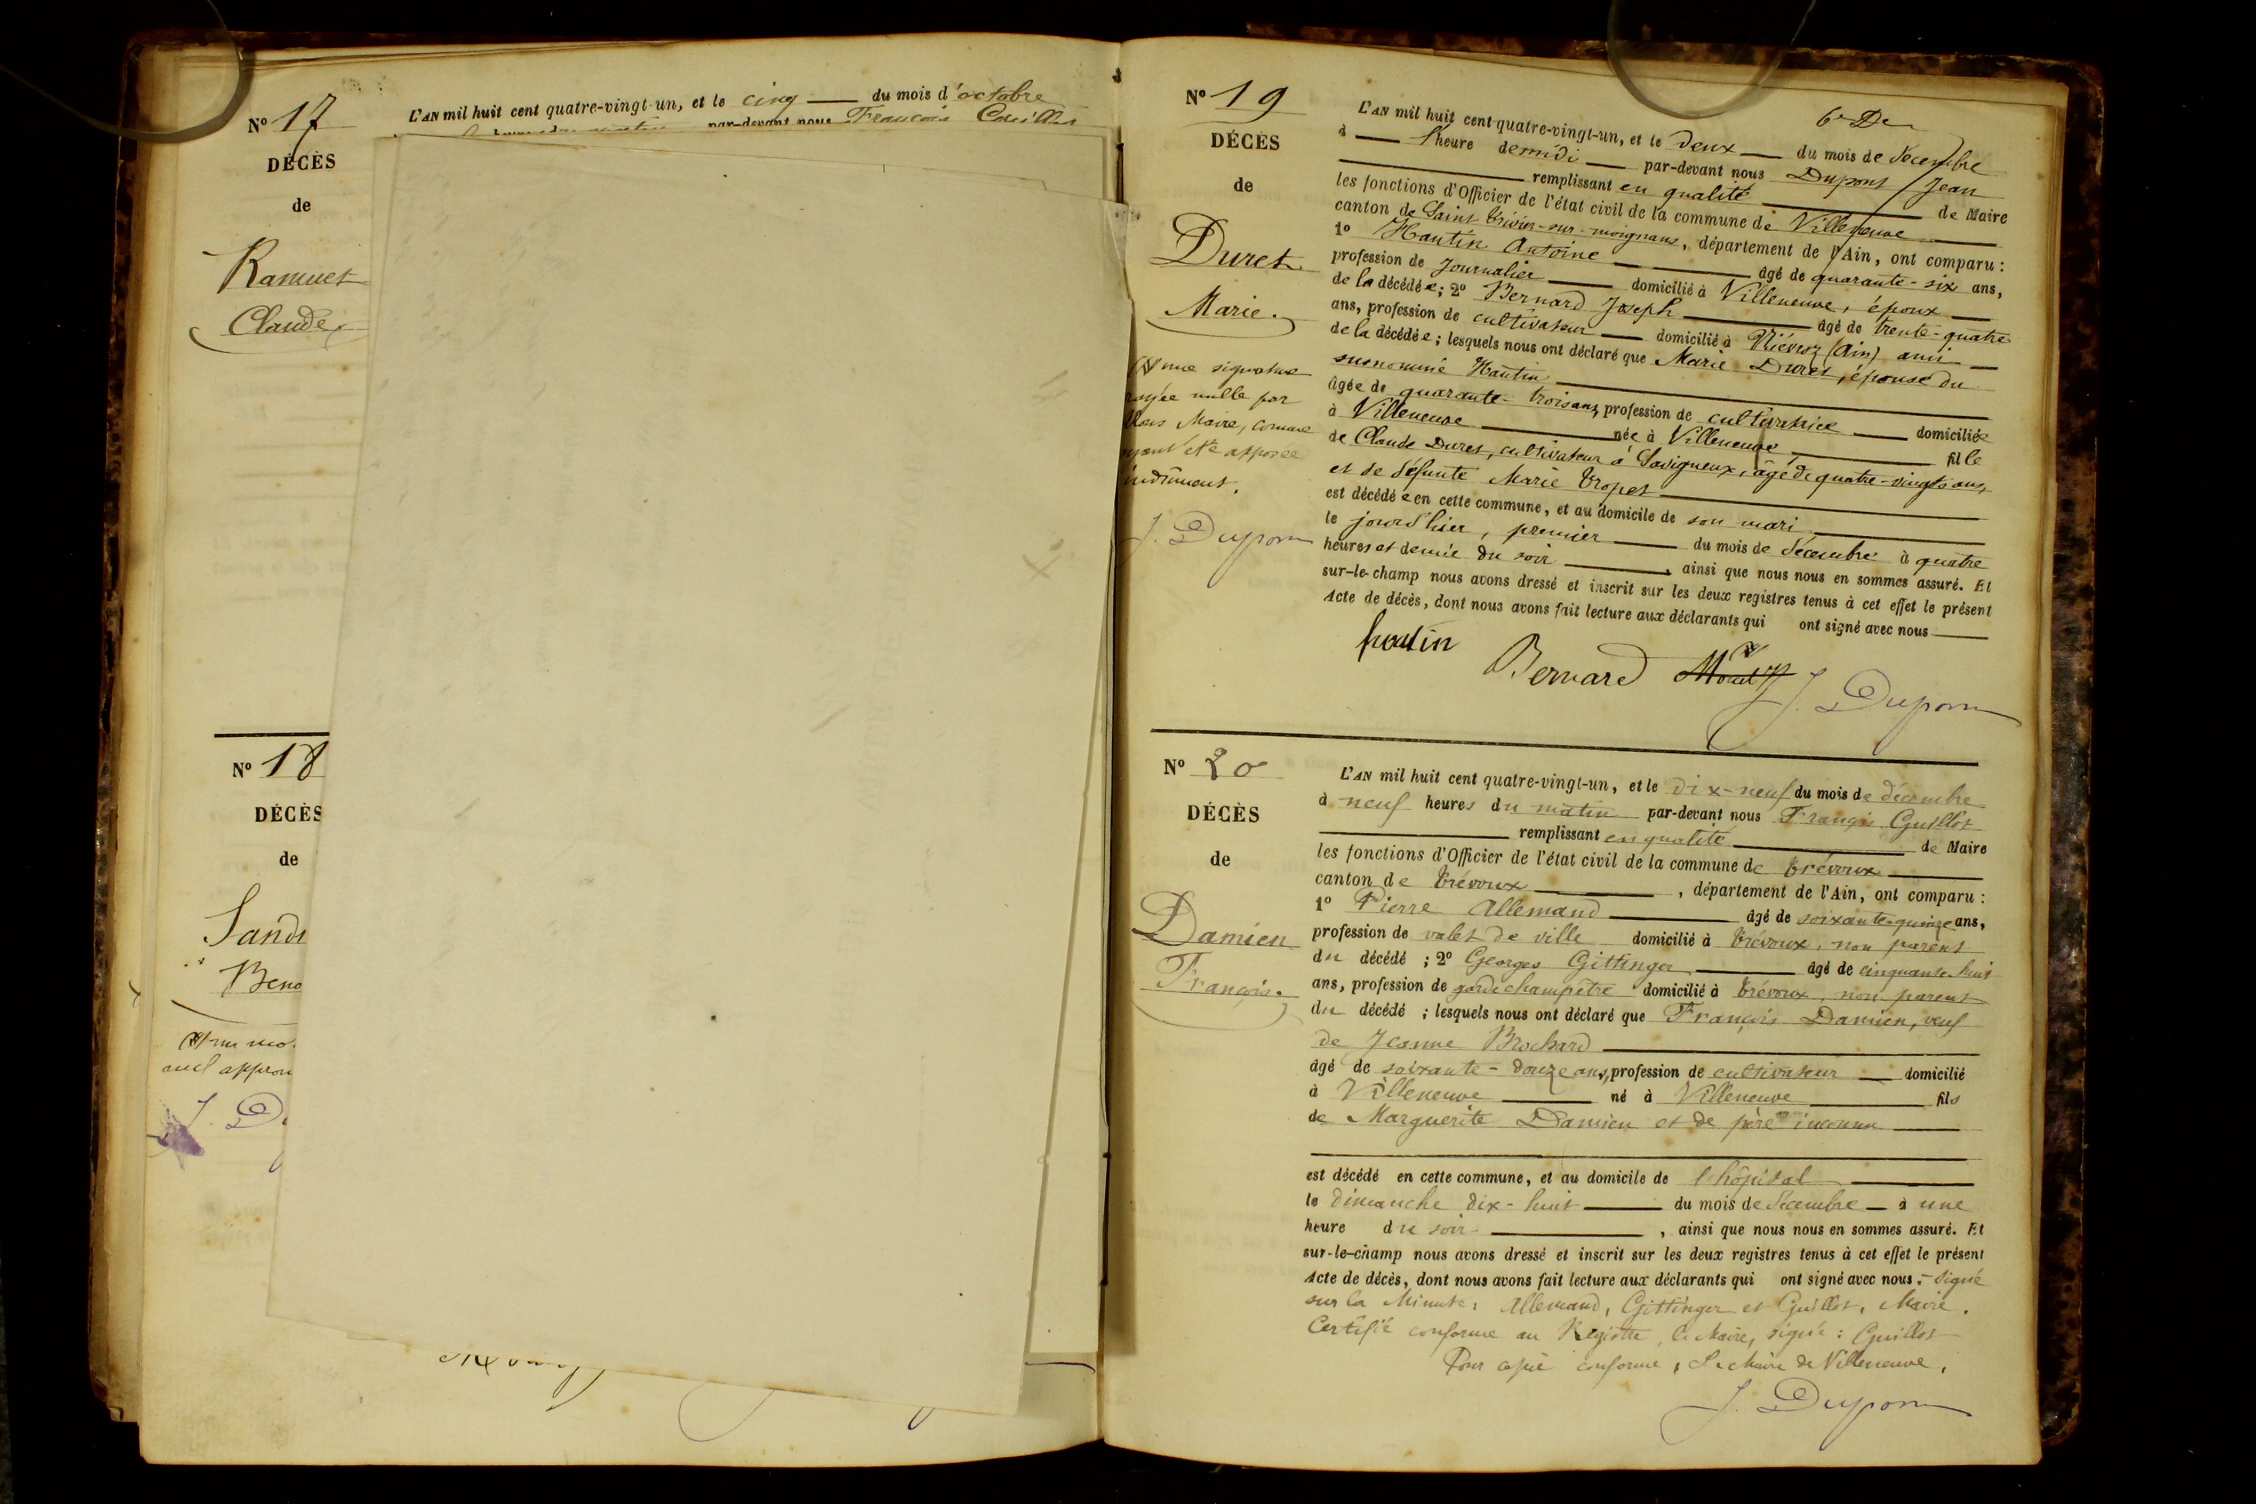 No 17
DÉCÈS
de
Ramuet
Claude
L'AN mil huit cent quatre-vingt-un, et le cinq du mois d'octobre
par-devant nous François
No 18
DÉCÈS
de
Sand
Beno
J. D
No 19
DÉCÈS
de
Duret
Marie.
une signature
rayée nulle par
Nous Maire, comme
ayant été apposée
indûment.
J. Dupont
L'AN mil huit cent quatre-vingt-un, et le deux du mois de décembre
à heure de midi par-devant nous Dupont Jean
remplissant en qualité de Maire
les fonctions d'Officier de l'état civil de la commune de Villeneuve
canton de Saint Trivier-sur-moignans, département de l'Ain, ont comparu :
1º Hautin Antoine âgé de quarante-six ans,
profession de Journalier domicilié à Villeneuve, époux
de la décédée ; 2º Bernard Joseph âgé de trente-quatre
ans, profession de cultivateur domicilié à (Ain) ami
de la décédée ; lesquels nous ont déclaré que Marie Duret, épouse du
susnommé Hautin
âgée de quarante-trois ans, profession de cultivatrice domiciliée
à Villeneuve née à Villeneuve fille
de Claude Duret, cultivateur à Savigneux, âgé de quatre-vingts ans,
et de défunte Marie Tropet
est décédée en cette commune, et au domicile de son mari
le jour d'hier, premier du mois de décembre à quatre
heures et demie du soir, ainsi que nous nous en sommes assuré. Et
sur-le-champ nous avons dressé et inscrit sur les deux registres tenus à cet effet le présent
Acte de décès, dont nous avons fait lecture aux déclarants qui ont signé avec nous
hautin Bernard J. Dupont
No 20
DÉCÈS
de
Damien
François.
L'AN mil huit cent quatre-vingt-un, et le dix-neuf du mois de décembre
à neuf heures du matin par-devant nous François Guillot
remplissant en qualité de Maire
les fonctions d'Officier de l'état civil de la commune de Trévoux
canton de Trévoux, département de l'Ain, ont comparu :
1º Pierre Allemand âgé de soixante-quinze ans,
profession de valet de ville domicilié à Trévoux, non parent
du décédé ; 2º Georges Gittinger âgé de cinquante-huit
ans, profession de garde champêtre domicilié à Trévoux, non parent
du décédé ; lesquels nous ont déclaré que François Damien, veuf
de Jeanne Brochard
âgé de soixante-douze ans, profession de cultivateur domicilié
à Villeneuve né à Villeneuve fils
de Marguerite Damien et de père inconnu
est décédé en cette commune, et au domicile de l'hôpital
le dimanche dix-huit du mois de décembre à une
heure du soir, ainsi que nous nous en sommes assuré. Et
sur-le-champ nous avons dressé et inscrit sur les deux registres tenus à cet effet le présent
Acte de décès, dont nous avons fait lecture aux déclarants qui ont signé avec nous. - Signé
sur la Minute : Allemand, Gittinger et Guillot, Maire.
Certifié conforme au Registre, le Maire, signé : Guillot
Pour copie conforme, Le Maire de Villeneuve,
J. Dupont